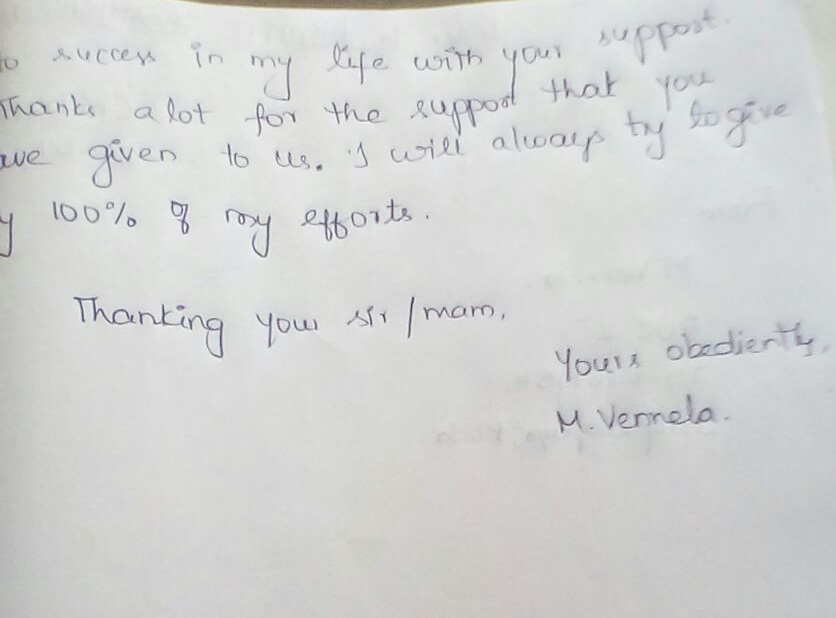 to success in my life with your support.
Thanks a lot for the support that you
ave given to us. I will always try to give
y 100% of my efforts.
Thanking your sir/mam,
Yours obediently,
M. Vennela.